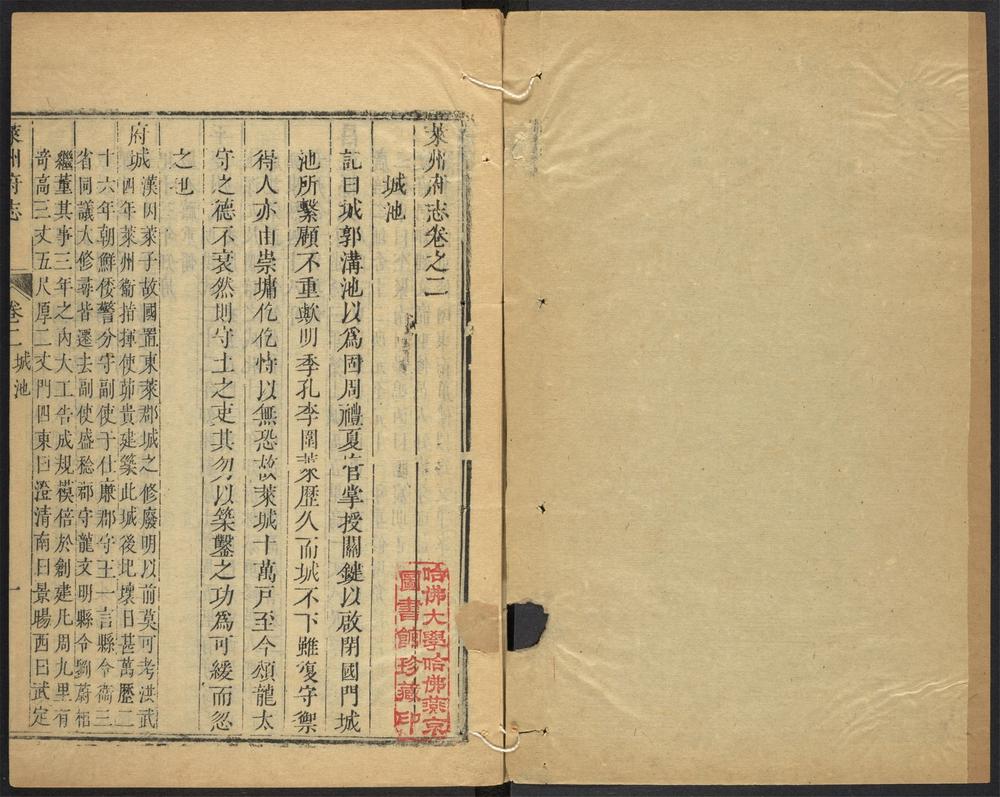 萊州府志卷之二
城池
記曰城郭溝池以爲固周禮夏官掌授關鍵以啟閉國門城
池所繫顧不重歟明季孔李圍萊歷久而城不下雖復守禦
得人亦由崇墉仡仡恃以無恐故萊城十萬戸至今頌龍太
守之德不衰然則守土之吏其勿以築鑿之功爲可緩而忽
之也
府城漢因萊子故國置東萊郡城之修廢明以前莫可考洪武
四年萊州衞指揮使茆貴建築此城後圮壞日甚萬歷二
十六年朝鮮倭警分守副使于仕廉郡守王一言縣令衞三
省同議大修尋皆遷去副使盛稔郡守龍文明縣令劉蔚
繼董其事三年之內大工告成規模倍於創建凡周九里有
奇高三丈五尺厚二丈門四東曰澄清南曰景暘西曰武定
萊州府志
卷二
城池
一
哈佛大學哈佛燕京
圖書館珍藏印